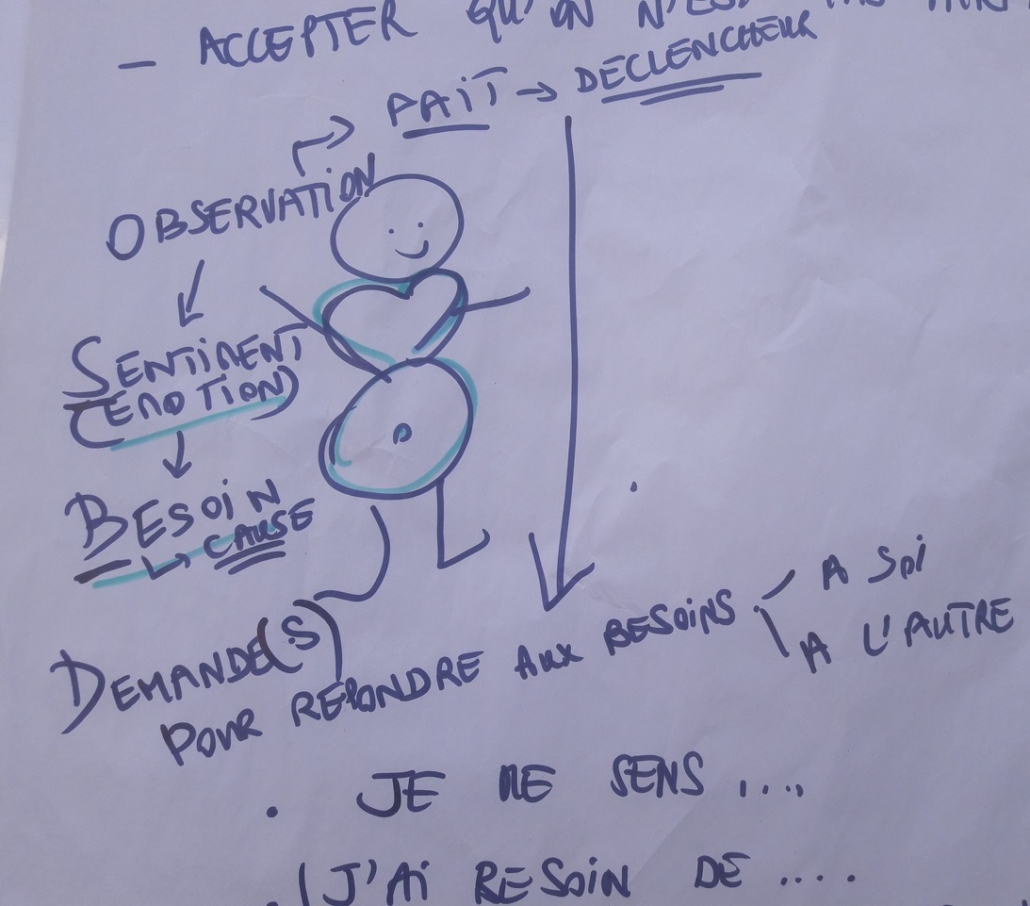 - ACCEPTER QU'ON N'EST PAS
FAIT → DECLENCHEUR
OBSERVATION
SENTIMENT
(EMOTION)
BESOIN
↳ CAUSE
DEMANDE(S)
POUR REPONDRE AUX BESOINS
A SOI
A L'AUTRE
. JE ME SENS ....
. (J'Ai BESOiN DE ....